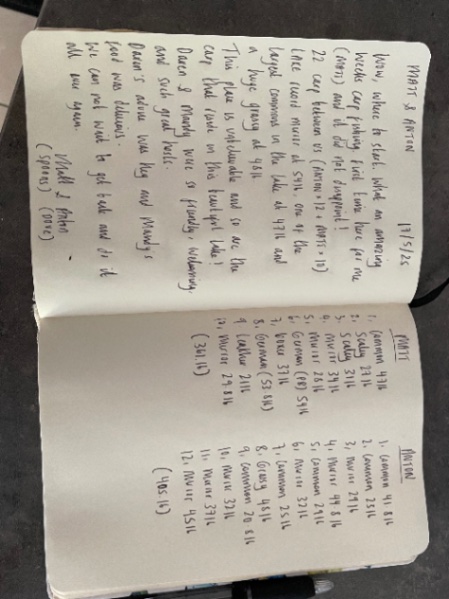 MATT & ANTON 17/5/25
Wow, where to start. What an amazing
weeks carp fishing first time here for me
(MATT) and it did not disappoint!
22 carp between us (ANTON x 12 + MATTS x 10)
Lake record mirror at 59lb one of the
largest commons in the lake at 47lb and
a huge grassy at 48lb
This place is unbelievable and so are the
carp that reside in this beautiful lake!
Daren & Mandy were so friendly, welcoming,
and such great hosts.
Daren's advice was key and Mandy's
food was delicious.
We can not wait to get back and do it
all over again.
Matt & Anton
MATT
1. Common 47lb
2. Scaley 27lb
3. Scaley 37lb
4. Mirror 34lb
5. Mirror 28lb
6. German (PB) 59lb
7. 37lb
8. German (53.8lb)
9. Leather 21lb
10. Mirror 29.8lb
ANTON
1. Common 41.8lb
2. Common 25lb
3. Mirror 29lb
4. Mirror 44.8lb
5. Common 29lb
6. Mirror 32lb
7. Common 25lb
8. Grassy 48lb
9. Common 20.8lb
10. Mirror 32lb
11. Mirror 37lb
12. Mirror 45lb
(405lb)